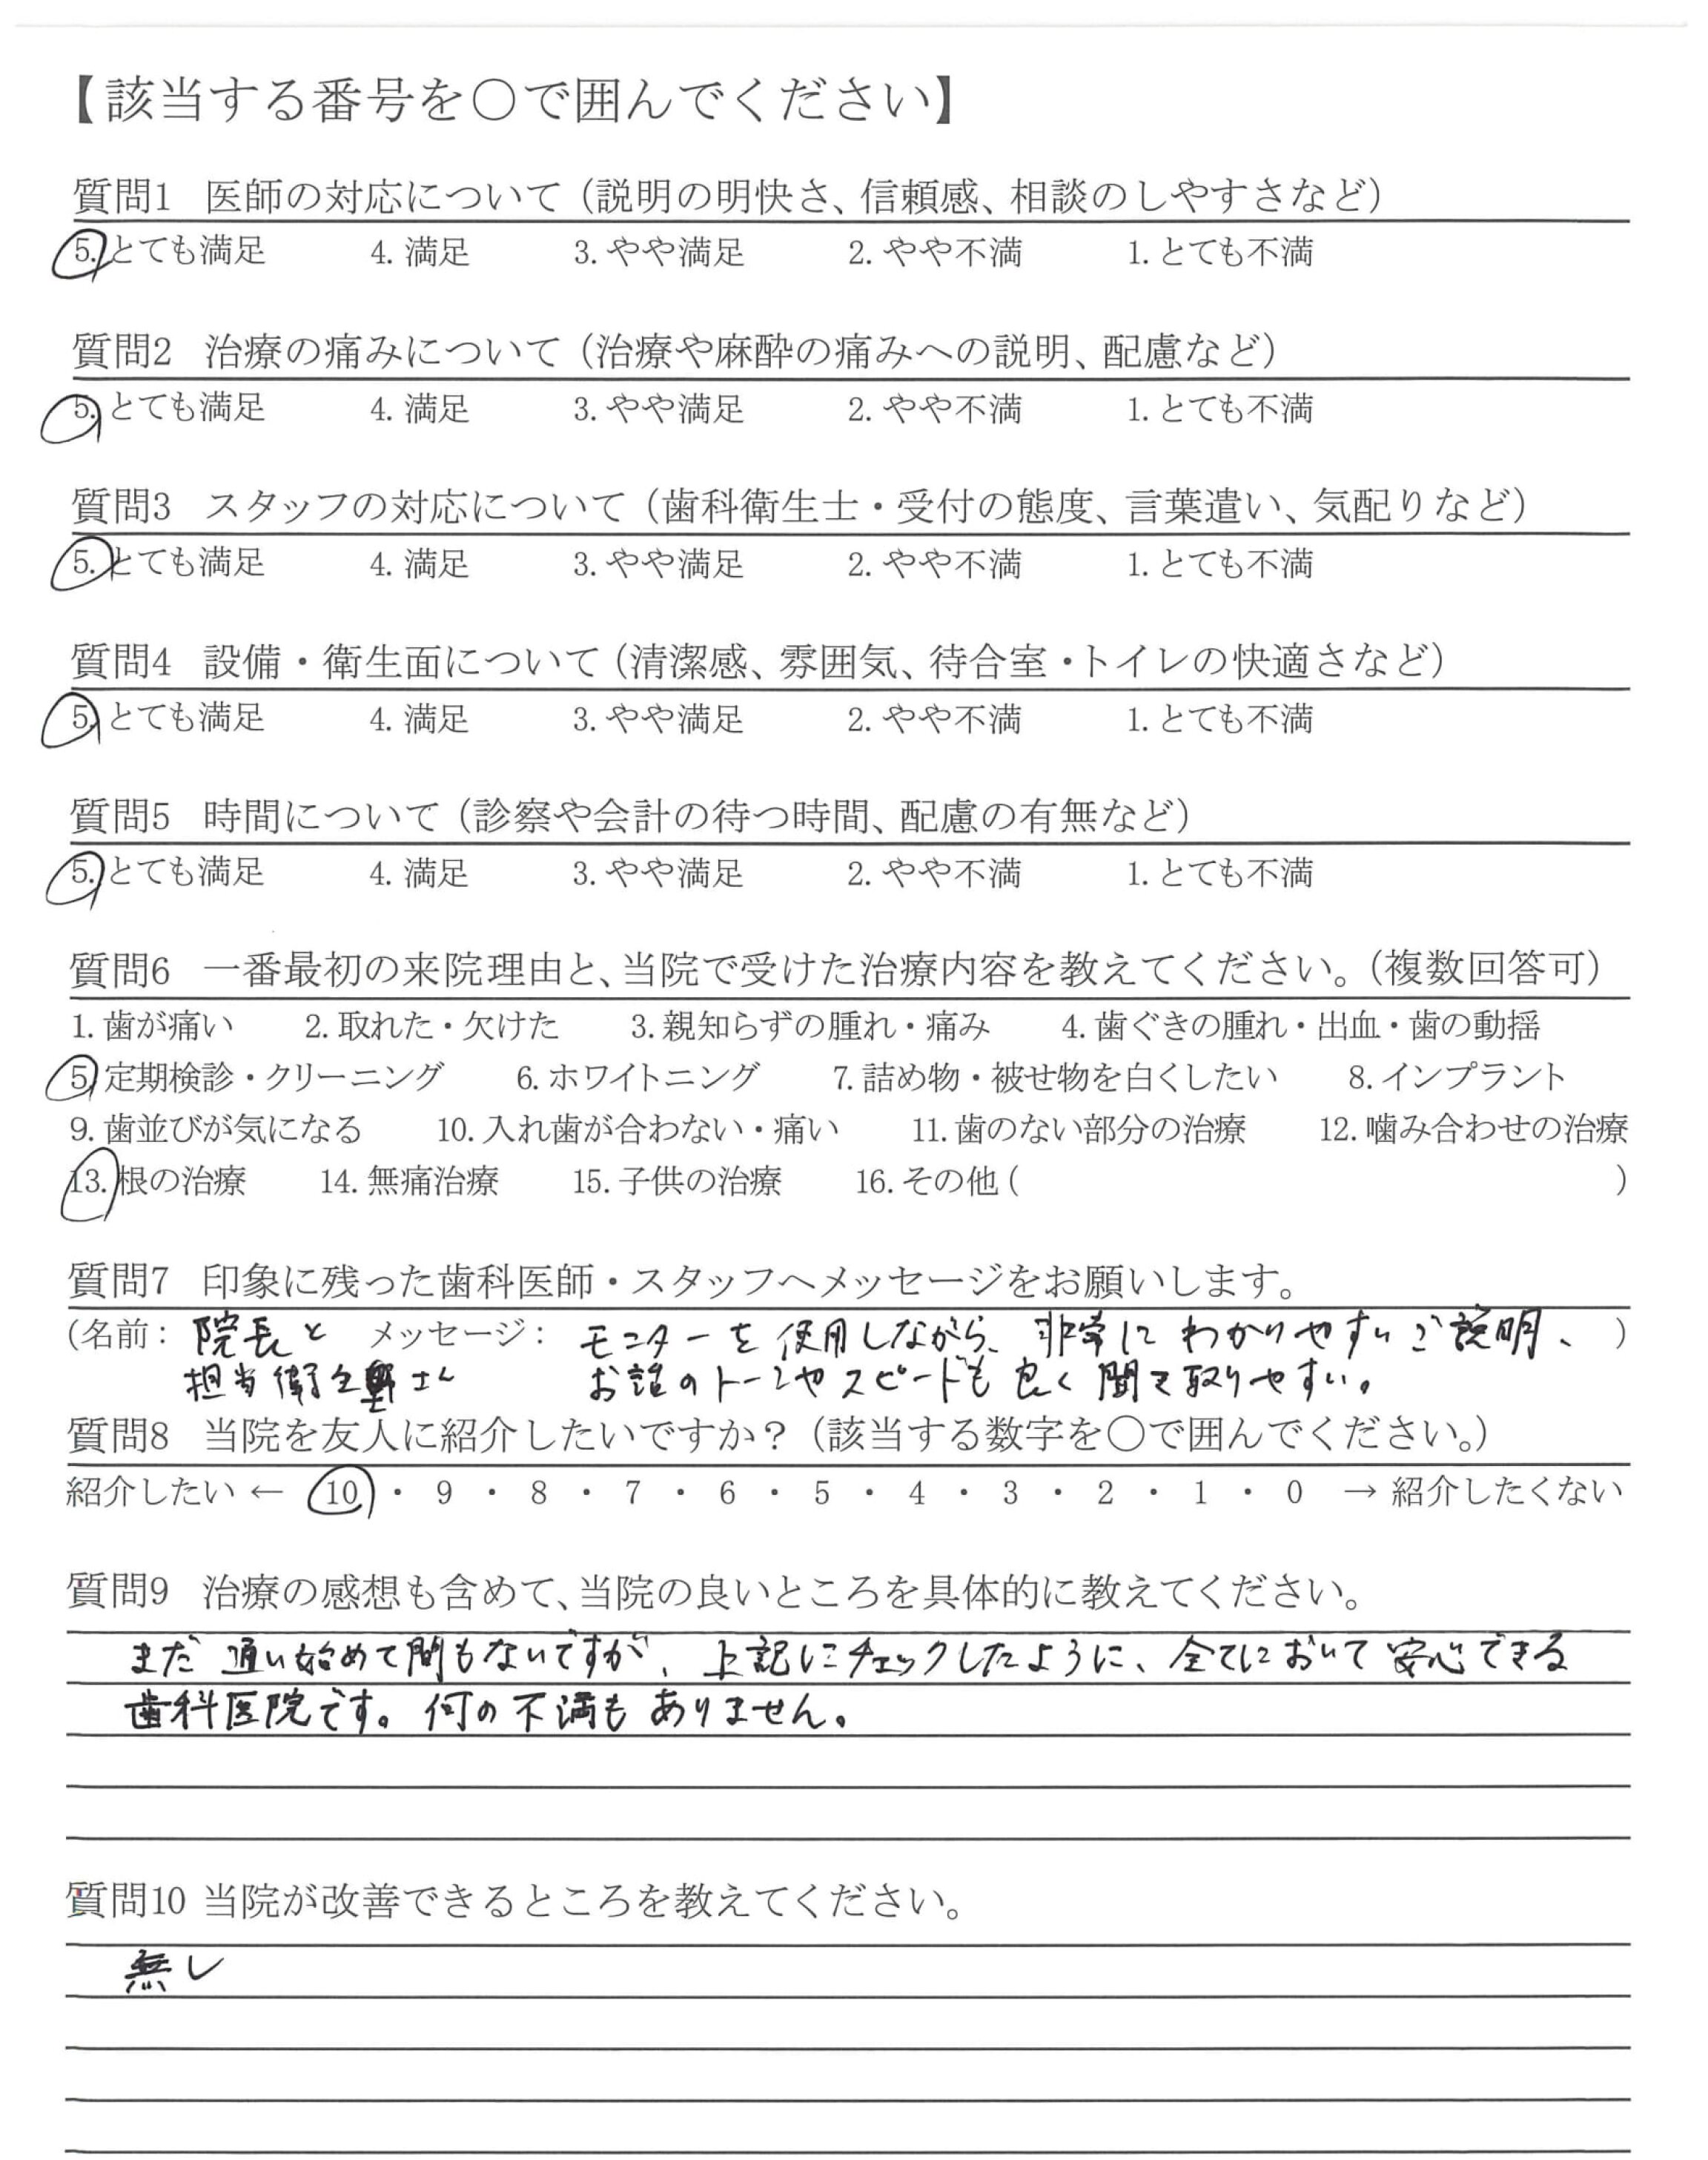 【該当する番号を〇で囲んでください】
質問1 医師の対応について（説明の明快さ、信頼感、相談のしやすさなど）
5. とても満足 4. 満足 3. やや満足 2. やや不満 1. とても不満
質問2 治療の痛みについて（治療や麻酔の痛みへの説明、配慮など）
5. とても満足 4. 満足 3. やや満足 2. やや不満 1. とても不満
質問3 スタッフの対応について（歯科衛生士・受付の態度、言葉遣い、気配りなど）
5. とても満足 4. 満足 3. やや満足 2. やや不満 1. とても不満
質問4 設備・衛生面について（清潔感、雰囲気、待合室・トイレの快適さなど）
5. とても満足 4. 満足 3. やや満足 2. やや不満 1. とても不満
質問5 時間について（診察や会計の待つ時間、配慮の有無など）
5. とても満足 4. 満足 3. やや満足 2. やや不満 1. とても不満
質問6 一番最初の来院理由と、当院で受けた治療内容を教えてください。（複数回答可）
1. 歯が痛い 2. 取れた・欠けた 3. 親知らずの腫れ・痛み 4. 歯ぐきの腫れ・出血・歯の動揺
5. 定期検診・クリーニング 6. ホワイトニング 7. 詰め物・被せ物を白くしたい 8. インプラント
9. 歯並びが気になる 10. 入れ歯が合わない・痛い 11. 歯のない部分の治療 12. 噛み合わせの治療
13. 根の治療 14. 無痛治療 15. 子供の治療 16. その他（ ）
質問7 印象に残った歯科医師・スタッフへメッセージをお願いします。
（名前： 院長と メッセージ： モニターを使用しながら、非常にわかりやすいご説明、）
担当衛生士さん お話のトーンやスピードも良く聞き取りやすい。
質問8 当院を友人に紹介したいですか？（該当する数字を〇で囲んでください。）
紹介したい ← 10 ・ 9 ・ 8 ・ 7 ・ 6 ・ 5 ・ 4 ・ 3 ・ 2 ・ 1 ・ 0 → 紹介したくない
質問9 治療の感想も含めて、当院の良いところを具体的に教えてください。
まだ通い始めて間もないですが、上記にチェックしたように、全てにおいて安心できる
歯科医院です。何の不満もありません。
質問10 当院が改善できるところを教えてください。
無し